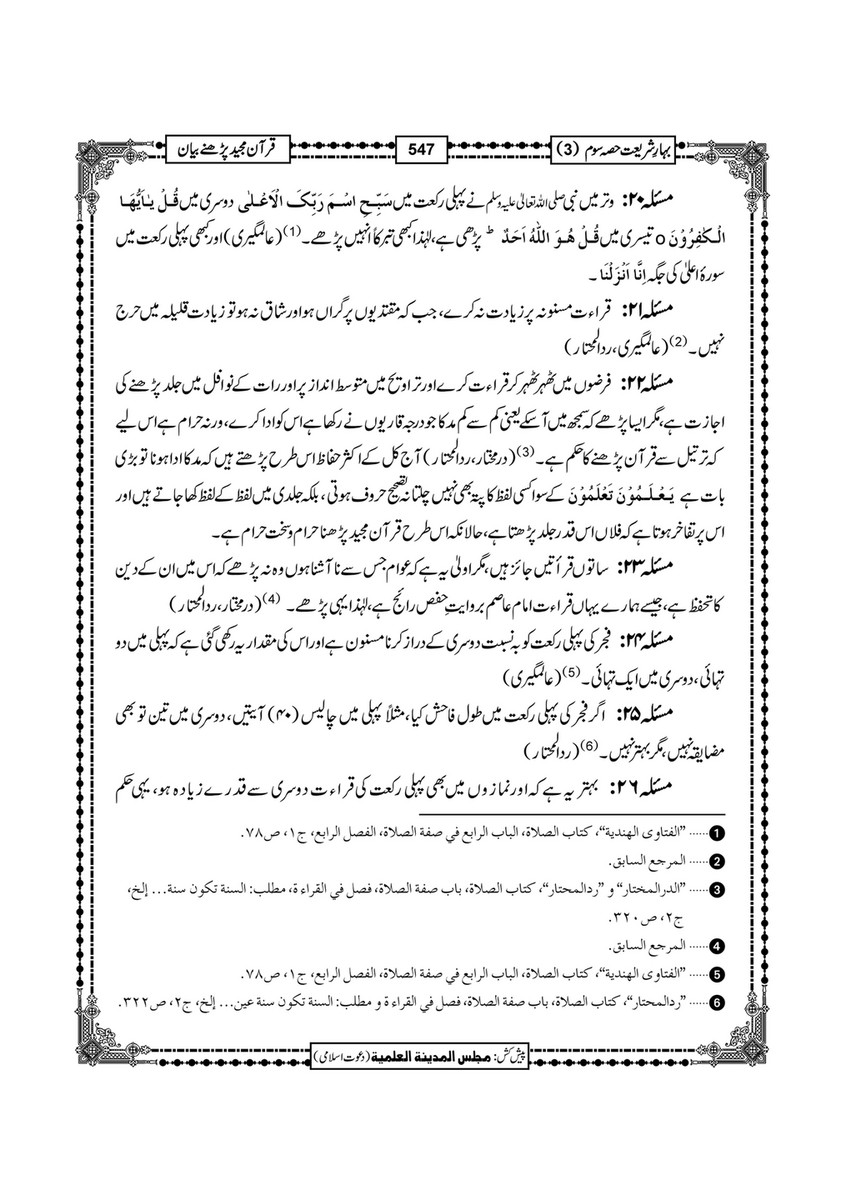 بہارِ شریعت حصہ سوم (3)
547
قرآن مجید پڑھنے بیان
مسئلہ ۲۰: وتر میں نبی صلی اللہ تعالیٰ علیہ وسلم نے پہلی رکعت میں سَبِّحِ اسْمَ رَبِّکَ الْاَعْلٰی دوسری میں قُلْ یٰـاَیُّھَا
الْکٰفِرُوْنَ o تیسری میں قُلْ ھُوَ اللہُ اَحَدٌ ؕ پڑھی ہے، لہٰذا کبھی تبرکاً انہیں پڑھے۔(1) (عالمگیری) اور کبھی پہلی رکعت میں
سورۂ اعلیٰ کی جگہ اِنَّا اَنْزَلْنَا ۔
مسئلہ ۲۱: قراءت مسنونہ پر زیادت نہ کرے، جب کہ مقتدیوں پر گراں ہو اور شاق نہ ہو تو زیادت قلیلہ میں حرج
نہیں۔(2) (عالمگیری، ردالمحتار)
مسئلہ ۲۲: فرضوں میں ٹھہر ٹھہر کر قراءت کرے اور تراویح میں متوسط انداز پر اور رات کے نوافل میں جلد پڑھنے کی
اجازت ہے، مگر ایسا پڑھے کہ سمجھ میں آسکے یعنی کم سے کم مد کا جو درجہ قاریوں نے رکھا ہے اس کو ادا کرے، ورنہ حرام ہے اس لیے
کہ ترتیل سے قرآن پڑھنے کا حکم ہے۔(3) (درمختار، ردالمحتار) آج کل کے اکثر حفاظ اس طرح پڑھتے ہیں کہ مد کا ادا ہونا تو بڑی
بات ہے یَعْلَمُوْنَ تَعْلَمُوْنَ کے سوا کسی لفظ کا پتہ بھی نہیں چلتا نہ تصحیح حروف ہوتی، بلکہ جلدی میں لفظ کے لفظ کھا جاتے ہیں اور
اس پر تفاخر ہوتا ہے کہ فلاں اس قدر جلد پڑھتا ہے، حالانکہ اس طرح قرآن مجید پڑھنا حرام و سخت حرام ہے۔
مسئلہ ۲۳: ساتوں قرأتیں جائز ہیں، مگر اولیٰ یہ ہے کہ عوام جس سے نا آشنا ہوں وہ نہ پڑھے کہ اس میں ان کے دین
کا تحفظ ہے، جیسے ہمارے یہاں قراءت امام عاصم بروایتِ حفص رائج ہے، لہٰذا یہی پڑھے۔ (4) (درمختار، ردالمحتار)
مسئلہ ۲۴: فجر کی پہلی رکعت کو بہ نسبت دوسری کے دراز کرنا مسنون ہے اور اس کی مقدار یہ رکھی گئی ہے کہ پہلی میں دو
تہائی، دوسری میں ایک تہائی۔(5) (عالمگیری)
مسئلہ ۲۵: اگر فجر کی پہلی رکعت میں طول فاحش کیا، مثلاً پہلی میں چالیس (۴۰) آیتیں، دوسری میں تین تو بھی
مضایقہ نہیں، مگر بہتر نہیں۔(6) (ردالمحتار)
مسئلہ ۲۶: بہتر یہ ہے کہ اور نمازوں میں بھی پہلی رکعت کی قراءت دوسری سے قدرے زیادہ ہو، یہی حکم
1 ...... "الفتاوی الهندية"، كتاب الصلاة، الباب الرابع في صفة الصلاة، الفصل الرابع، ج۱، ص۷۸.
2 ...... المرجع السابق.
3 ...... "الدرالمختار" و "ردالمحتار"، كتاب الصلاة، باب صفة الصلاة، فصل في القراءة، مطلب: السنة تكون سنة... إلخ،
ج۲، ص۳۲۰.
4 ...... المرجع السابق.
5 ...... "الفتاوی الهندية"، كتاب الصلاة، الباب الرابع في صفة الصلاة، الفصل الرابع، ج۱، ص۷۸.
6 ...... "ردالمحتار"، كتاب الصلاة، باب صفة الصلاة، فصل في القراءة و مطلب: السنة تكون سنة عين... إلخ، ج۲، ص۳۲۲.
پیش کش: مجلس المدينة العلمية (دعوت اسلامی)